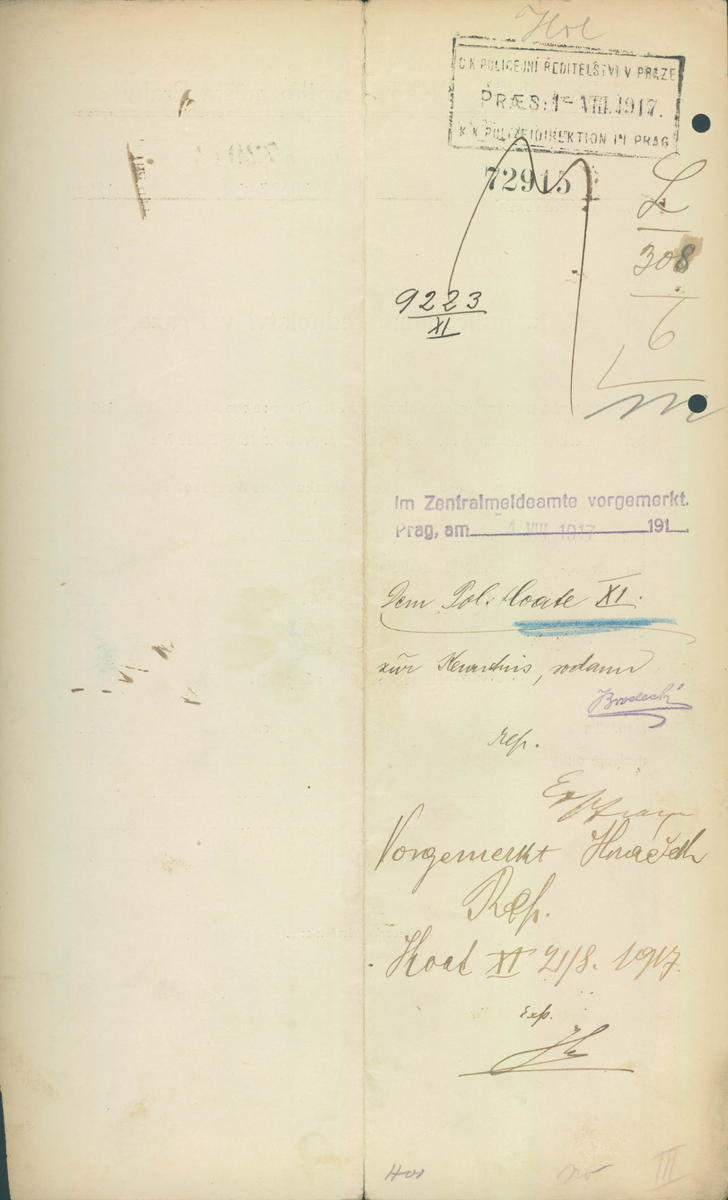 Hol
C.K. POLICEJNÍ ŘEDITELSTVÍ V PRAZE
PRÆS: 1- VIII. 1917.
K.K. POLIZEIDIREKTION IN PRAG
72915
L
308
6
9223
XI
Im Zentralmeldeamte vorgemerkt.
Prag, am 4 VIII 1917 191 .
Dem Pol: Koate XI.
zur Kenntnis, sodann
rep.
Vorgemerkt
Rep.
Koat XI 21/8. 1917.
Exp.
III